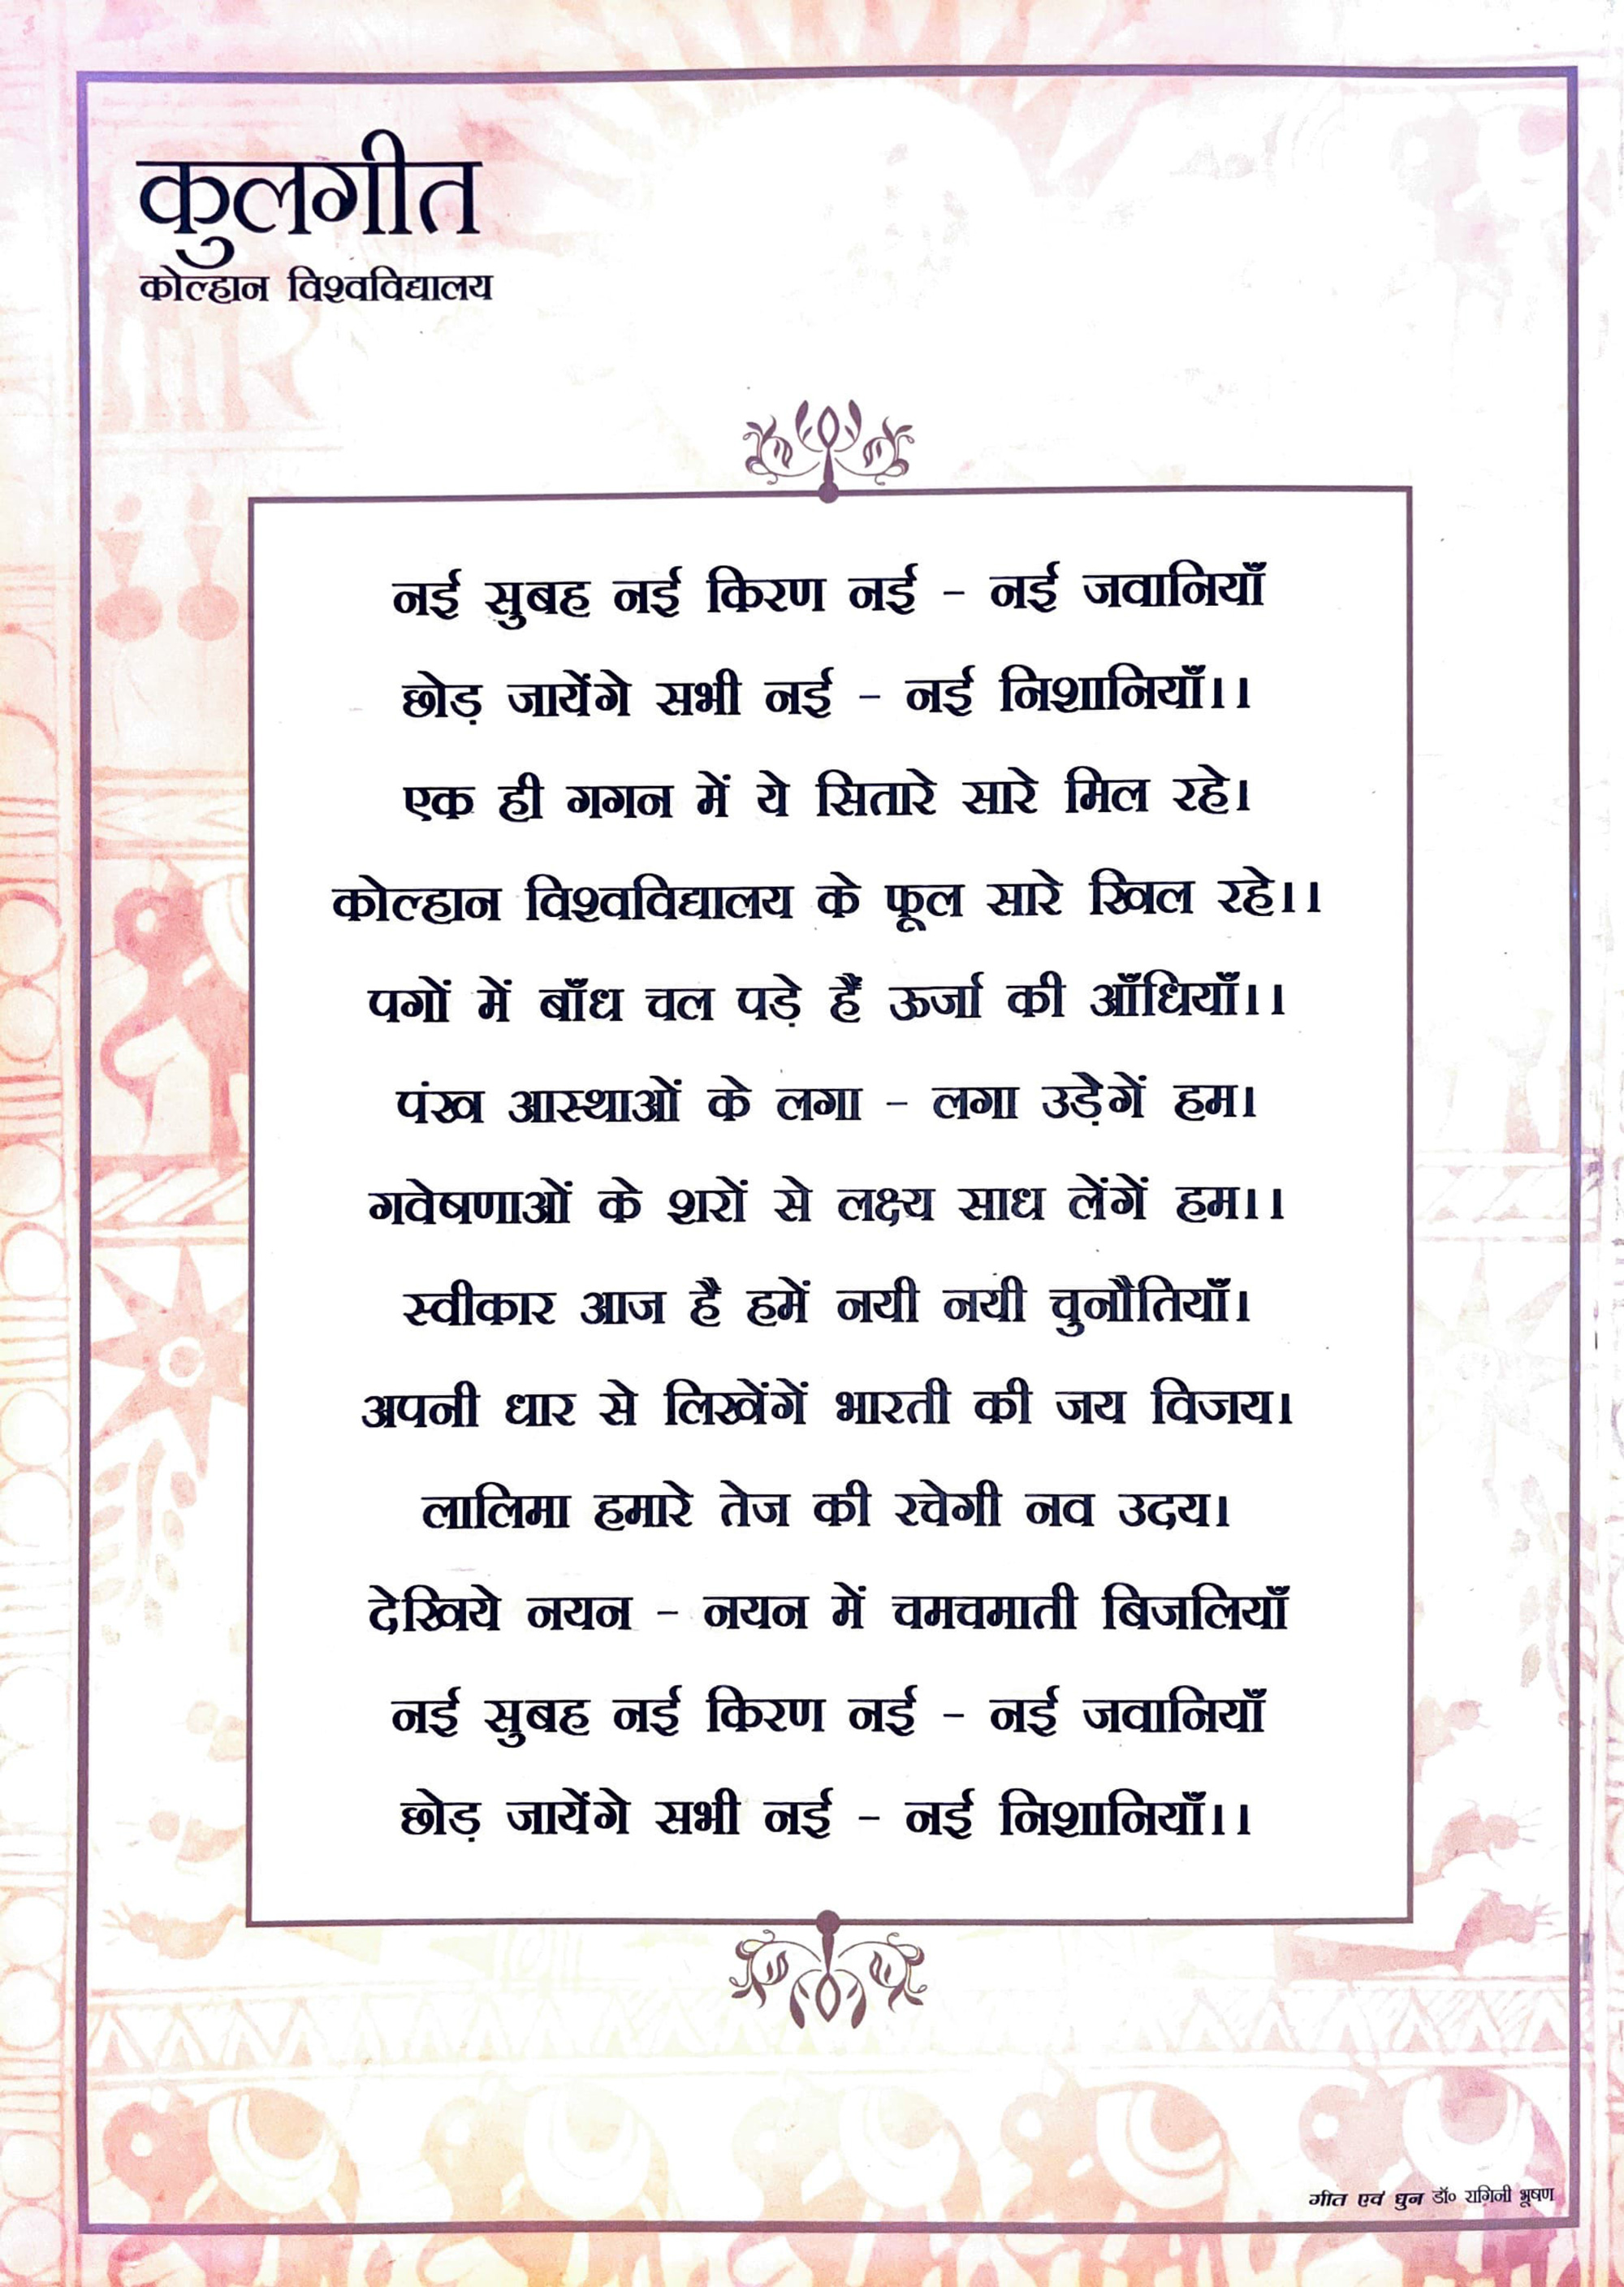 कुलगीत
कोल्हान विश्वविद्यालय
नई सुबह नई किरण नई - नई जवानियाँ
छोड़ जायेंगे सभी नई - नई निशानियाँ।।
एक ही गगन में ये सितारे सारे मिल रहे।
कोल्हान विश्वविद्यालय के फूल सारे खिल रहे।।
पगों में बाँध चल पड़े हैं ऊर्जा की आँधियाँ।।
पंख आस्थाओं के लगा - लगा उड़ेगें हम।
गवेषणाओं के शरों से लक्ष्य साध लेंगें हम।।
स्वीकार आज है हमें नयी नयी चुनौतियाँ।
अपनी धार से लिखेंगें भारती की जय विजय।
लालिमा हमारे तेज की रचेगी नव उदय।
देखिये नयन - नयन में चमचमाती बिजलियाँ
नई सुबह नई किरण नई - नई जवानियाँ
छोड़ जायेंगे सभी नई - नई निशानियाँ।।
गीत एवं धुन डॉ० रागिनी भूषण